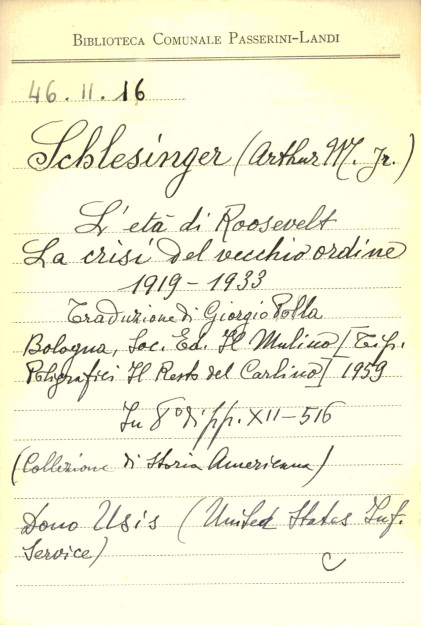 BIBLIOTECA COMUNALE PASSERINI-LANDI
46.II.16
Schlesinger (Arthur M. Jr.)
L'età di Roosevelt
La crisi del vecchio ordine
1919-1933
Traduzione di Giorgio Rolla
Bologna, Soc. Ed. Il Mulino [Tip.
Poligrafici Il Resto del Carlino] 1959
In 8° di pp. XII-516
(Collezione di Storia Americana)
Dono Usis (United States Inf.
Service)
C